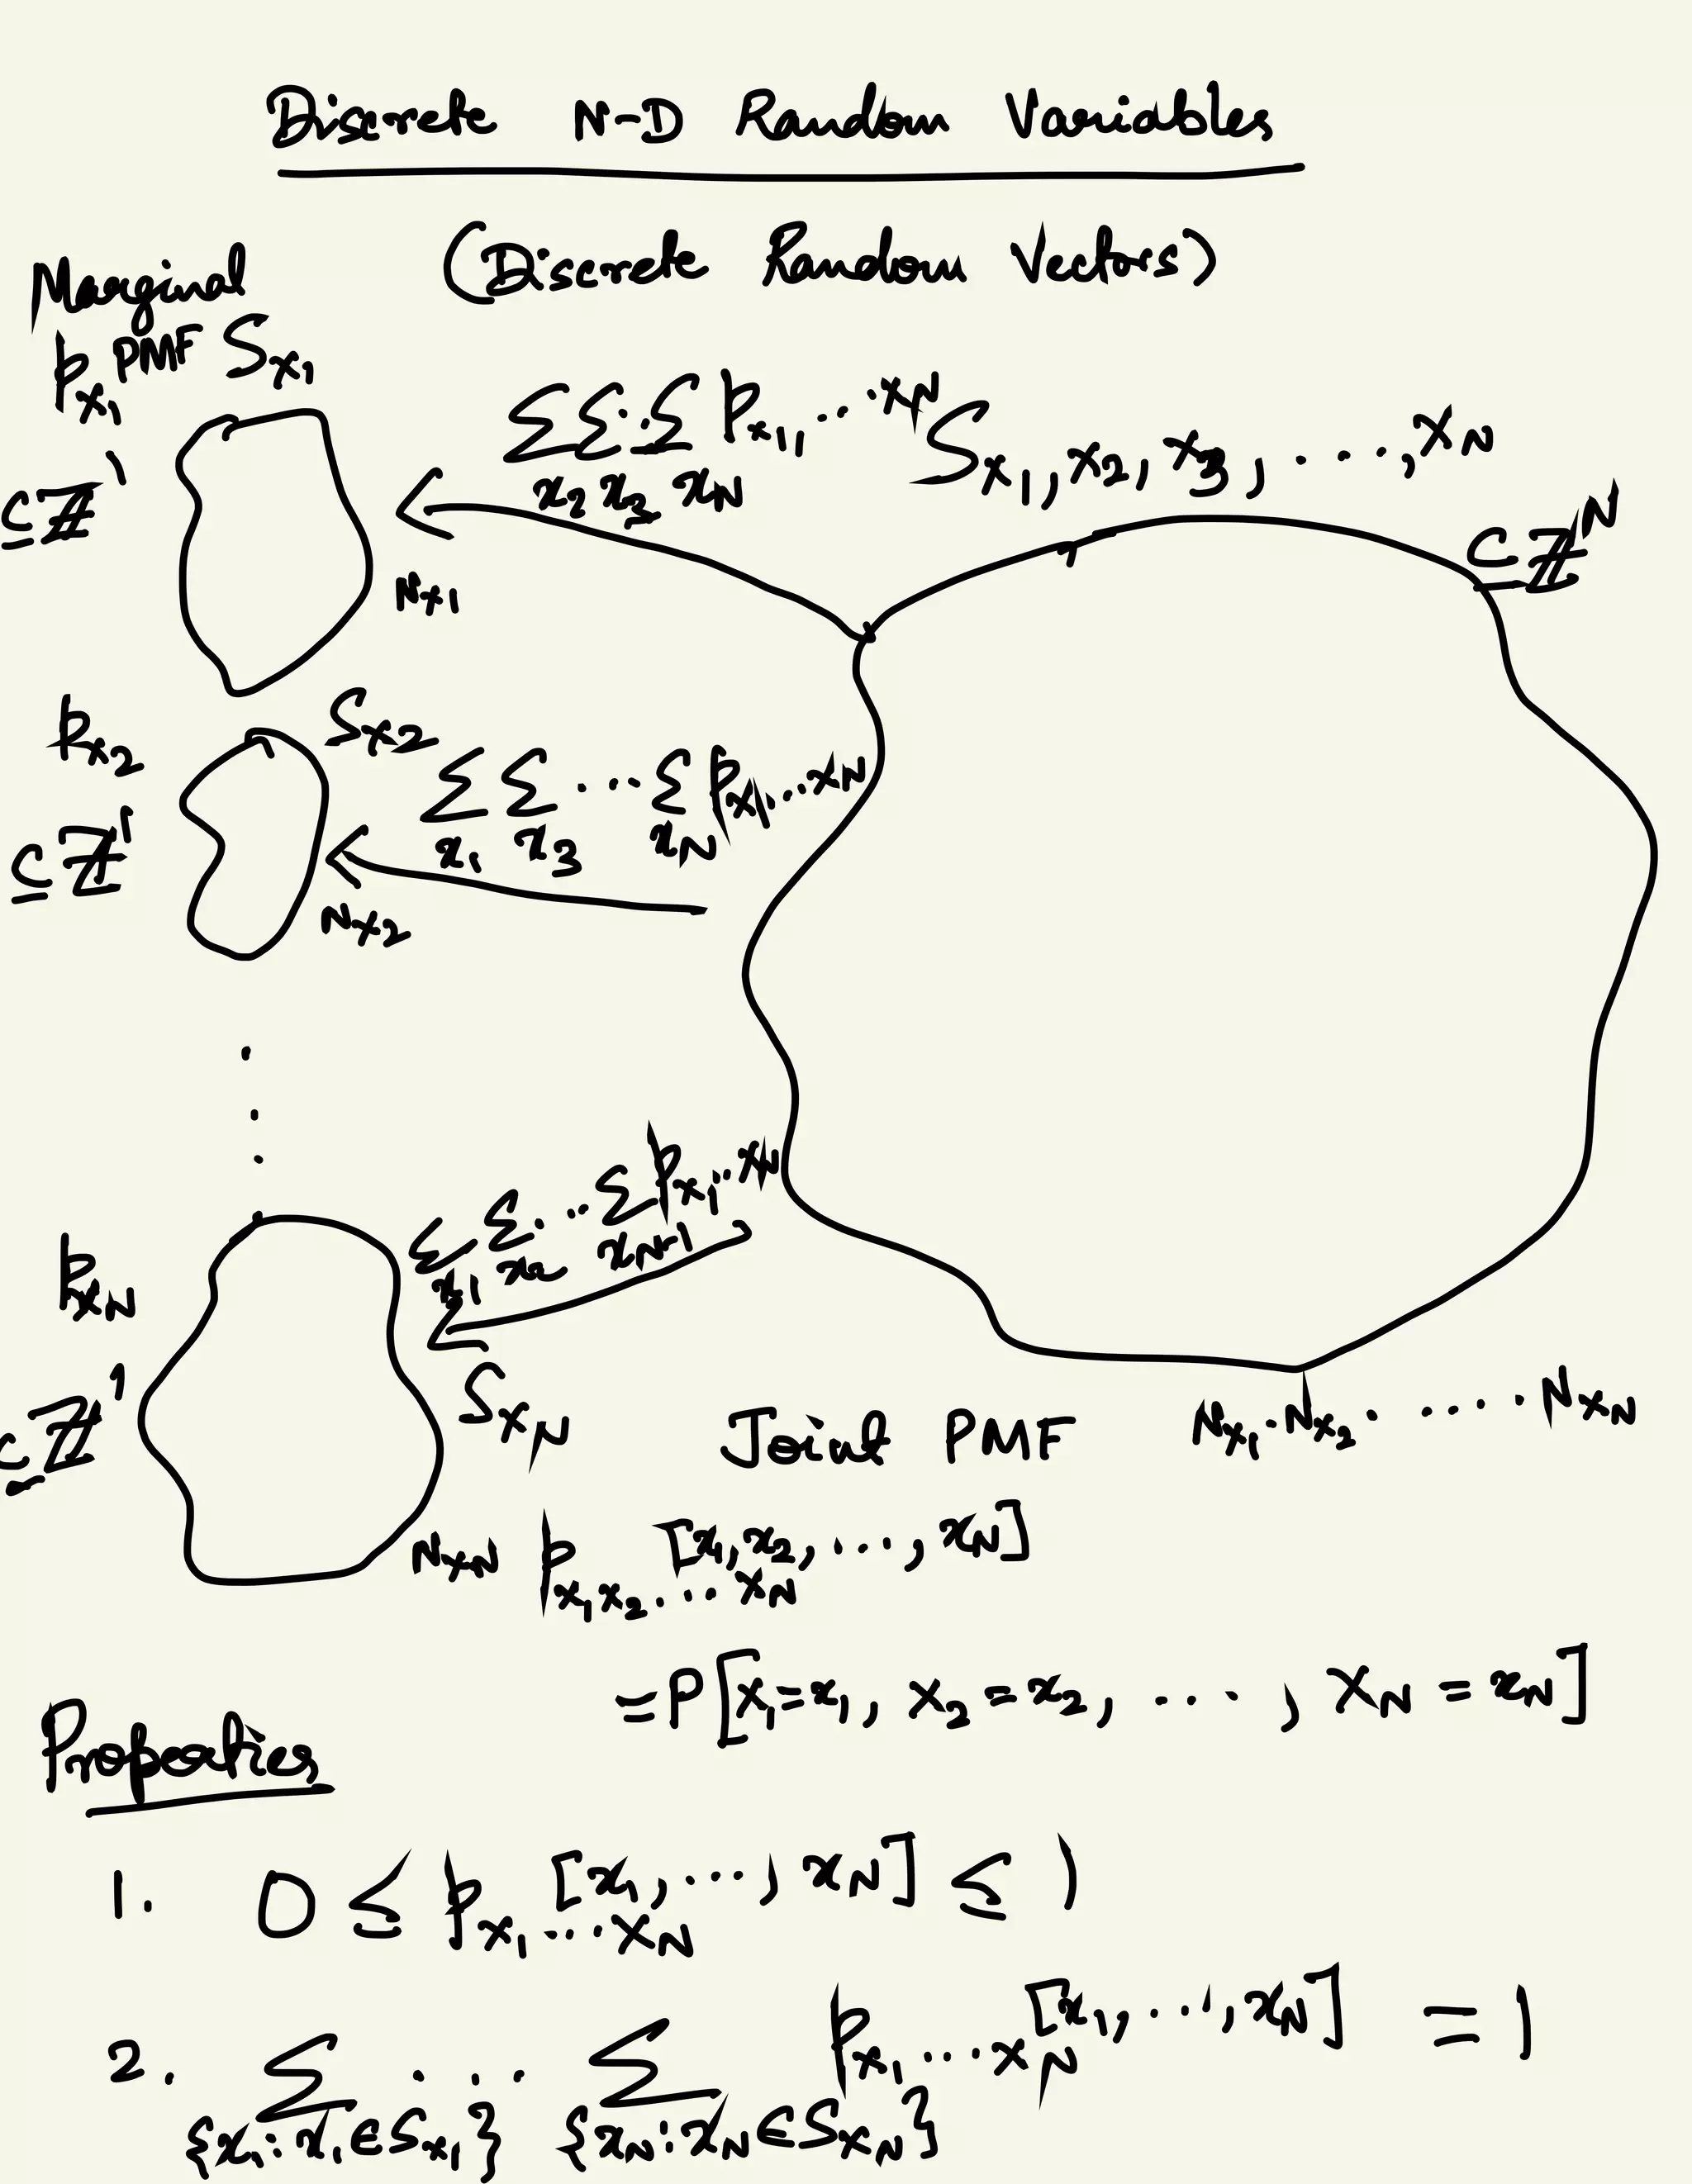 Discrete N-D Random Variables
(Discrete Random Vectors)
Marginal
PMF
p_{X_1} S_{X_1}
⊆ ℤ^1
N_{X_1}
Σ_{x_2} Σ_{x_3} ... Σ_{x_N} p_{X_1, ... X_N}
S_{X_1, X_2, X_3, ....., X_N}
⊆ ℤ^N
p_{X_2} S_{X_2}
⊆ ℤ^1
N_{X_2}
Σ_{x_1} Σ_{x_3} ... Σ_{x_N} p_{X_1 ... X_N}
p_{X_N}
⊆ ℤ^1
Σ_{x_1} Σ_{x_2} ... Σ_{x_{N-1}} p_{X_1 ... X_N}
S_{X_N}
N_{X_N}
Joint PMF N_{X_1} . N_{X_2} . ..... N_{X_N}
p_{X_1 X_2 .... X_N} [x_1, x_2, ..., x_N]
= P[X_1 = x_1, X_2 = x_2, ...., X_N = x_N]
Properties
1. 0 ≤ p_{X_1 ... X_N} [x_1, ..., x_N] ≤ 1
2. Σ_{{x_1 : x_1 ∈ S_{X_1}}} .... Σ_{{x_N : x_N ∈ S_{X_N}}} p_{X_1 .... X_N} [x_1, ..., x_N] = 1